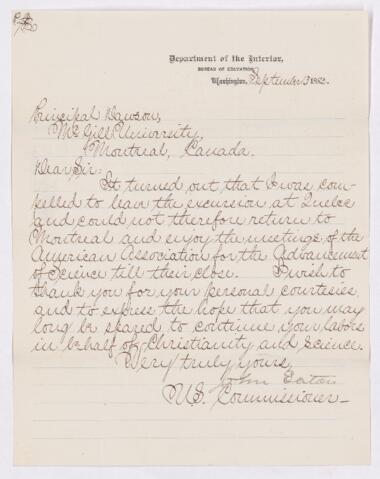 Department of the Interior,
BUREAU OF EDUCATION,
Washington, September 3 1882.
Principal Dawson,
McGill University,
Montreal, Canada.
Dear Sir:
It turned out that I was com-
pelled to leave the excursion at Quebec
and could not therefore return to
Montreal and enjoy the meetings of the
American Association for the Advancement
of Science till their close. I wish to
thank you for your personal courtesies,
and to express the hope that you may
long be spared to continue your labors
in behalf of Christianity and Science.
Very truly yours,
John Eaton
U.S. Commissioner-